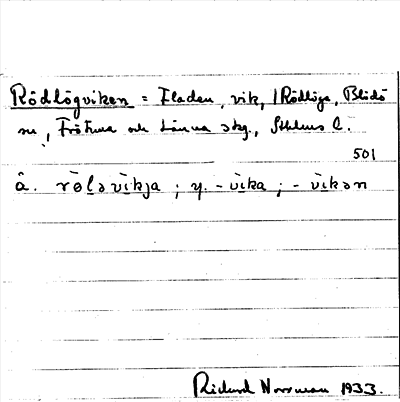 Rödlögviken = Fladen, vik, i Rödlöga, Blidö
sn, Frötuna och Länna skg., Sthlms l.
501
å. rö̀lavìkja ; y. - vìka ; - vìkən
Rickard Norrman 1933.